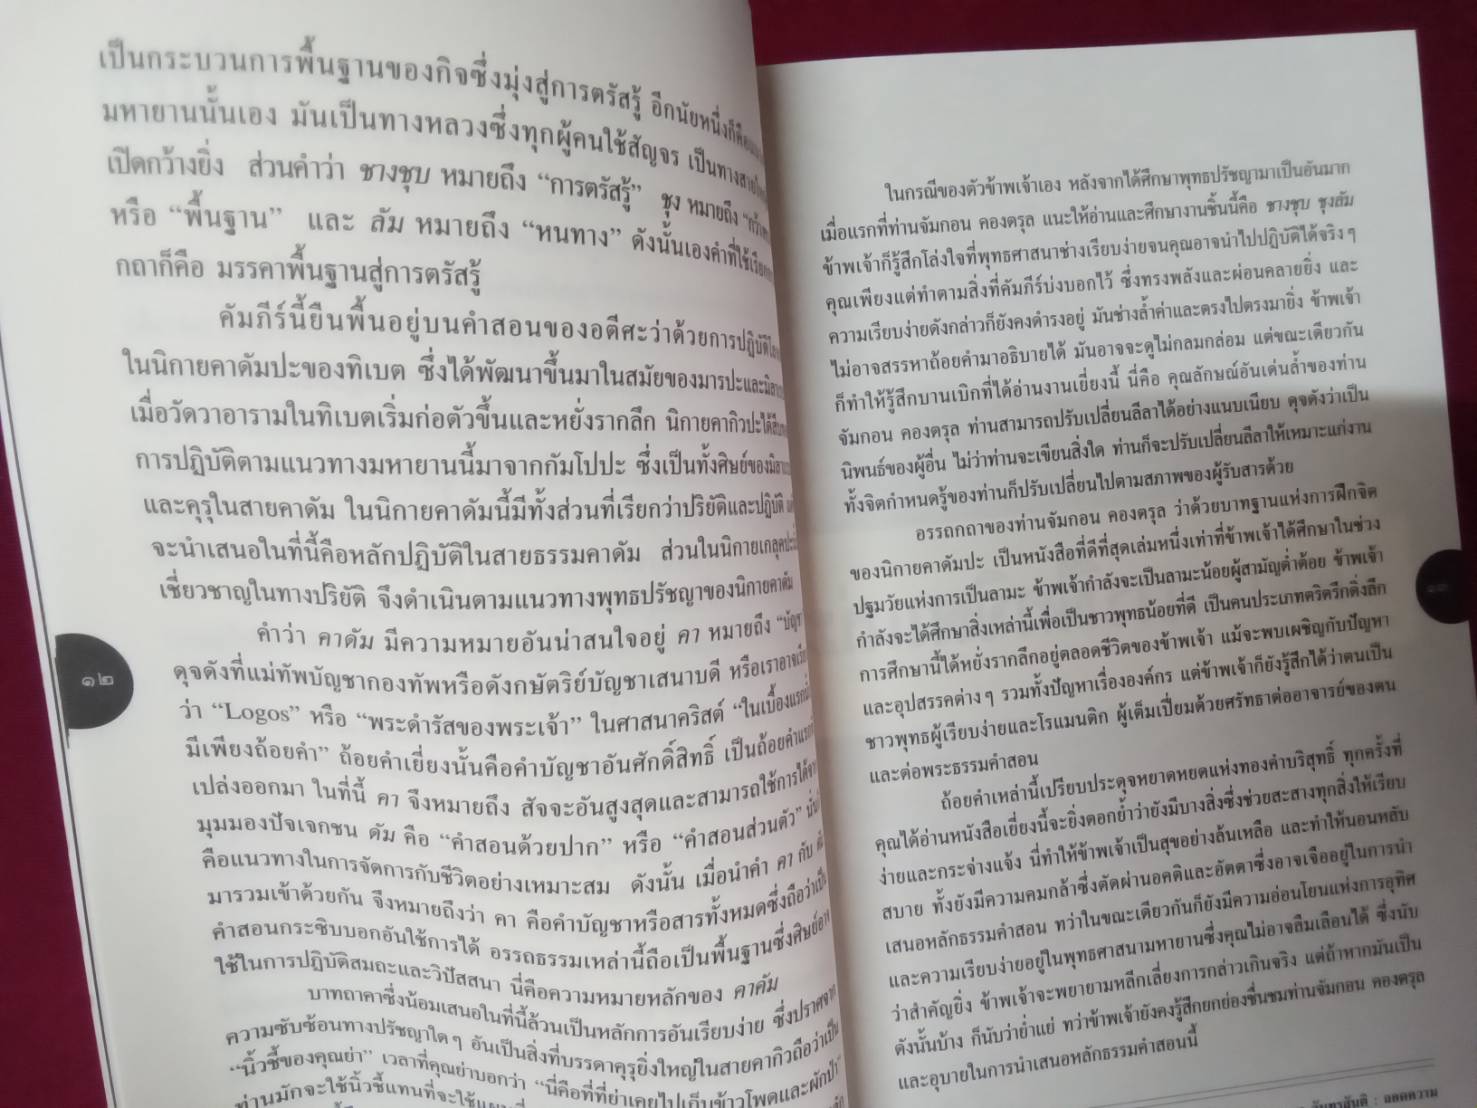 เป็นกระบวนการพื้นฐานของกิจซึ่งมุ่งสู่การตรัสรู้ อีกนัยหนึ่งก็คือ
มหายานนั้นเอง มันเป็นทางหลวงซึ่งทุกผู้คนใช้สัญจร เป็นทางสาย
เปิดกว้างยิ่ง ส่วนคำว่า ชางชุบ หมายถึง “การตรัสรู้” ชุง หมายถึง
หรือ “พื้นฐาน” และ ลัม หมายถึง “หนทาง” ดังนั้นเองคำที่ใช้เรียก
กถาก็คือ มรรคาพื้นฐานสู่การตรัสรู้
คัมภีร์นี้ยืนพื้นอยู่บนคำสอนของอตีศะว่าด้วยการปฏิบัติ
ในนิกายคาดัมปะของทิเบต ซึ่งได้พัฒนาขึ้นมาในสมัยของมารปะและ
เมื่อวัดวาอารามในทิเบตเริ่มก่อตัวขึ้นและหยั่งรากลึก นิกายคากิวปะได้
การปฏิบัติตามแนวทางมหายานนี้มาจากกัมโปปะ ซึ่งเป็นทั้งศิษย์ของ
และคุรุในสายคาดัม ในนิกายคาดัมนี้มีทั้งส่วนที่เรียกว่าปริยัติและปฏิบัติ
จะนำเสนอในที่นี้คือหลักปฏิบัติในสายธรรมคาดัม ส่วนในนิกายเกลุคปะ
เชี่ยวชาญในทางปริยัติ จึงดำเนินตามแนวทางพุทธปรัชญาของนิกายคาดัม
คำว่า คาดัม มีความหมายอันน่าสนใจอยู่ คา หมายถึง “บัญชา
ดุจดังที่แม่ทัพบัญชากองทัพหรือดังกษัตริย์บัญชาเสนาบดี หรือเราอาจเรียก
ว่า “Logos” หรือ “พระดำรัสของพระเจ้า” ในศาสนาคริสต์ “ในเบื้องแรกนั้น
มีเพียงถ้อยคำ” ถ้อยคำเยี่ยงนั้นคือคำบัญชาอันศักดิ์สิทธิ์ เป็นถ้อยคำแรก
เปล่งออกมา ในที่นี้ คา จึงหมายถึง สัจจะอันสูงสุดและสามารถใช้การได้จาก
มุมมองปัจเจกชน ดัม คือ “คำสอนด้วยปาก” หรือ “คำสอนส่วนตัว”
คือแนวทางในการจัดการกับชีวิตอย่างเหมาะสม ดังนั้น เมื่อนำคำ คา กับ ดัม
มารวมเข้าด้วยกัน จึงหมายถึงว่า คา คือคำบัญชาหรือสารทั้งหมดซึ่งถือว่าเป็น
คำสอนกระซิบบอกอันใช้การได้ อรรถธรรมเหล่านี้ถือเป็นพื้นฐานซึ่งศิษย์อาจ
ใช้ในการปฏิบัติสมถะและวิปัสสนา นี่คือความหมายหลักของ คาดัม
บาทถาคาซึ่งน้อมเสนอในที่นี้ล้วนเป็นหลักการอันเรียบง่าย ซึ่งปราศจาก
ความซับซ้อนทางปรัชญาใดๆ อันเป็นสิ่งที่บรรดาคุรุยิ่งใหญ่ในสายคากิวถือว่าเป็น
“นิ้วชี้ของคุณย่า” เวลาที่คุณย่าบอกว่า “นี่คือที่ที่ย่าเคยไปเก็บข้าวโพดและผักป่า”
ท่านมักจะใช้นิ้วชี้แทนที่จะใช้แผนที่
๑๒
ในกรณีของตัวข้าพเจ้าเอง หลังจากได้ศึกษาพุทธปรัชญามาเป็นอันมาก
เมื่อแรกที่ท่านจัมกอน คองตรุล แนะให้อ่านและศึกษางานชิ้นนี้คือ ชางชุบ ชุงลัม
ข้าพเจ้าก็รู้สึกโล่งใจที่พุทธศาสนาช่างเรียบง่ายจนคุณอาจนำไปปฏิบัติได้จริงๆ
คุณเพียงแต่ทำตามสิ่งที่คัมภีร์บ่งบอกไว้ ซึ่งทรงพลังและผ่อนคลายยิ่ง และ
ความเรียบง่ายดังกล่าวก็ยังคงดำรงอยู่ มันช่างล้ำค่าและตรงไปตรงมายิ่ง ข้าพเจ้า
ไม่อาจสรรหาถ้อยคำมาอธิบายได้ มันอาจจะดูไม่กลมกล่อม แต่ขณะเดียวกัน
ก็ทำให้รู้สึกบานเบิกที่ได้อ่านงานเยี่ยงนี้ นี่คือ คุณลักษณ์อันเด่นล้ำของท่าน
จัมกอน คองตรุล ท่านสามารถปรับเปลี่ยนลีลาได้อย่างแนบเนียบ ดุจดังว่าเป็น
นิพนธ์ของผู้อื่น ไม่ว่าท่านจะเขียนสิ่งใด ท่านก็จะปรับเปลี่ยนลีลาให้เหมาะแก่งาน
ทั้งจิตกำหนดรู้ของท่านก็ปรับเปลี่ยนไปตามสภาพของผู้รับสารด้วย
อรรถกถาของท่านจัมกอน คองตรุล ว่าด้วยบาทฐานแห่งการฝึกจิต
ของนิกายคาดัมปะ เป็นหนังสือที่ดีที่สุดเล่มหนึ่งเท่าที่ข้าพเจ้าได้ศึกษาในช่วง
ปฐมวัยแห่งการเป็นลามะ ข้าพเจ้ากำลังจะเป็นลามะน้อยผู้สามัญต่ำต้อย ข้าพเจ้า
กำลังจะได้ศึกษาสิ่งเหล่านี้เพื่อเป็นชาวพุทธน้อยที่ดี เป็นคนประเภทตริตรึกดิ่งลึก
การศึกษานี้ได้หยั่งรากลึกอยู่ตลอดชีวิตของข้าพเจ้า แม้จะพบเผชิญกับปัญหา
และอุปสรรคต่างๆ รวมทั้งปัญหาเรื่ององค์กร แต่ข้าพเจ้าก็ยังรู้สึกได้ว่าตนเป็น
ชาวพุทธผู้เรียบง่ายและโรแมนติก ผู้เต็มเปี่ยมด้วยศรัทธาต่ออาจารย์ของตน
และต่อพระธรรมคำสอน
ถ้อยคำเหล่านี้เปรียบประดุจหยาดหยดแห่งทองคำบริสุทธิ์ ทุกครั้งที่
คุณได้อ่านหนังสือเยี่ยงนี้จะยิ่งตอกย้ำว่ายังมีบางสิ่งซึ่งช่วยสะสางทุกสิ่งให้เรียบ
ง่ายและกระจ่างแจ้ง นี่ทำให้ข้าพเจ้าเป็นสุขอย่างล้นเหลือ และทำให้นอนหลับ
สบาย ทั้งยังมีความคมกล้าซึ่งตัดผ่านอคติและอัตตาซึ่งอาจเจืออยู่ในการนำ
เสนอหลักธรรมคำสอน ทว่าในขณะเดียวกันก็ยังมีความอ่อนโยนแห่งการอุทิศ
และความเรียบง่ายอยู่ในพุทธศาสนามหายานซึ่งคุณไม่อาจลืมเลือนได้ ซึ่งนับ
ว่าสำคัญยิ่ง ข้าพเจ้าจะพยายามหลีกเลี่ยงการกล่าวเกินจริง แต่ถ้าหากมันเป็น
ดังนั้นบ้าง ก็นับว่าย่ำแย่ ทว่าข้าพเจ้ายังคงรู้สึกยกย่องชื่นชมท่านจัมกอน คองตรุล
และอุบายในการนำเสนอหลักธรรมคำสอนนี้
๑๓
: ถอดความ